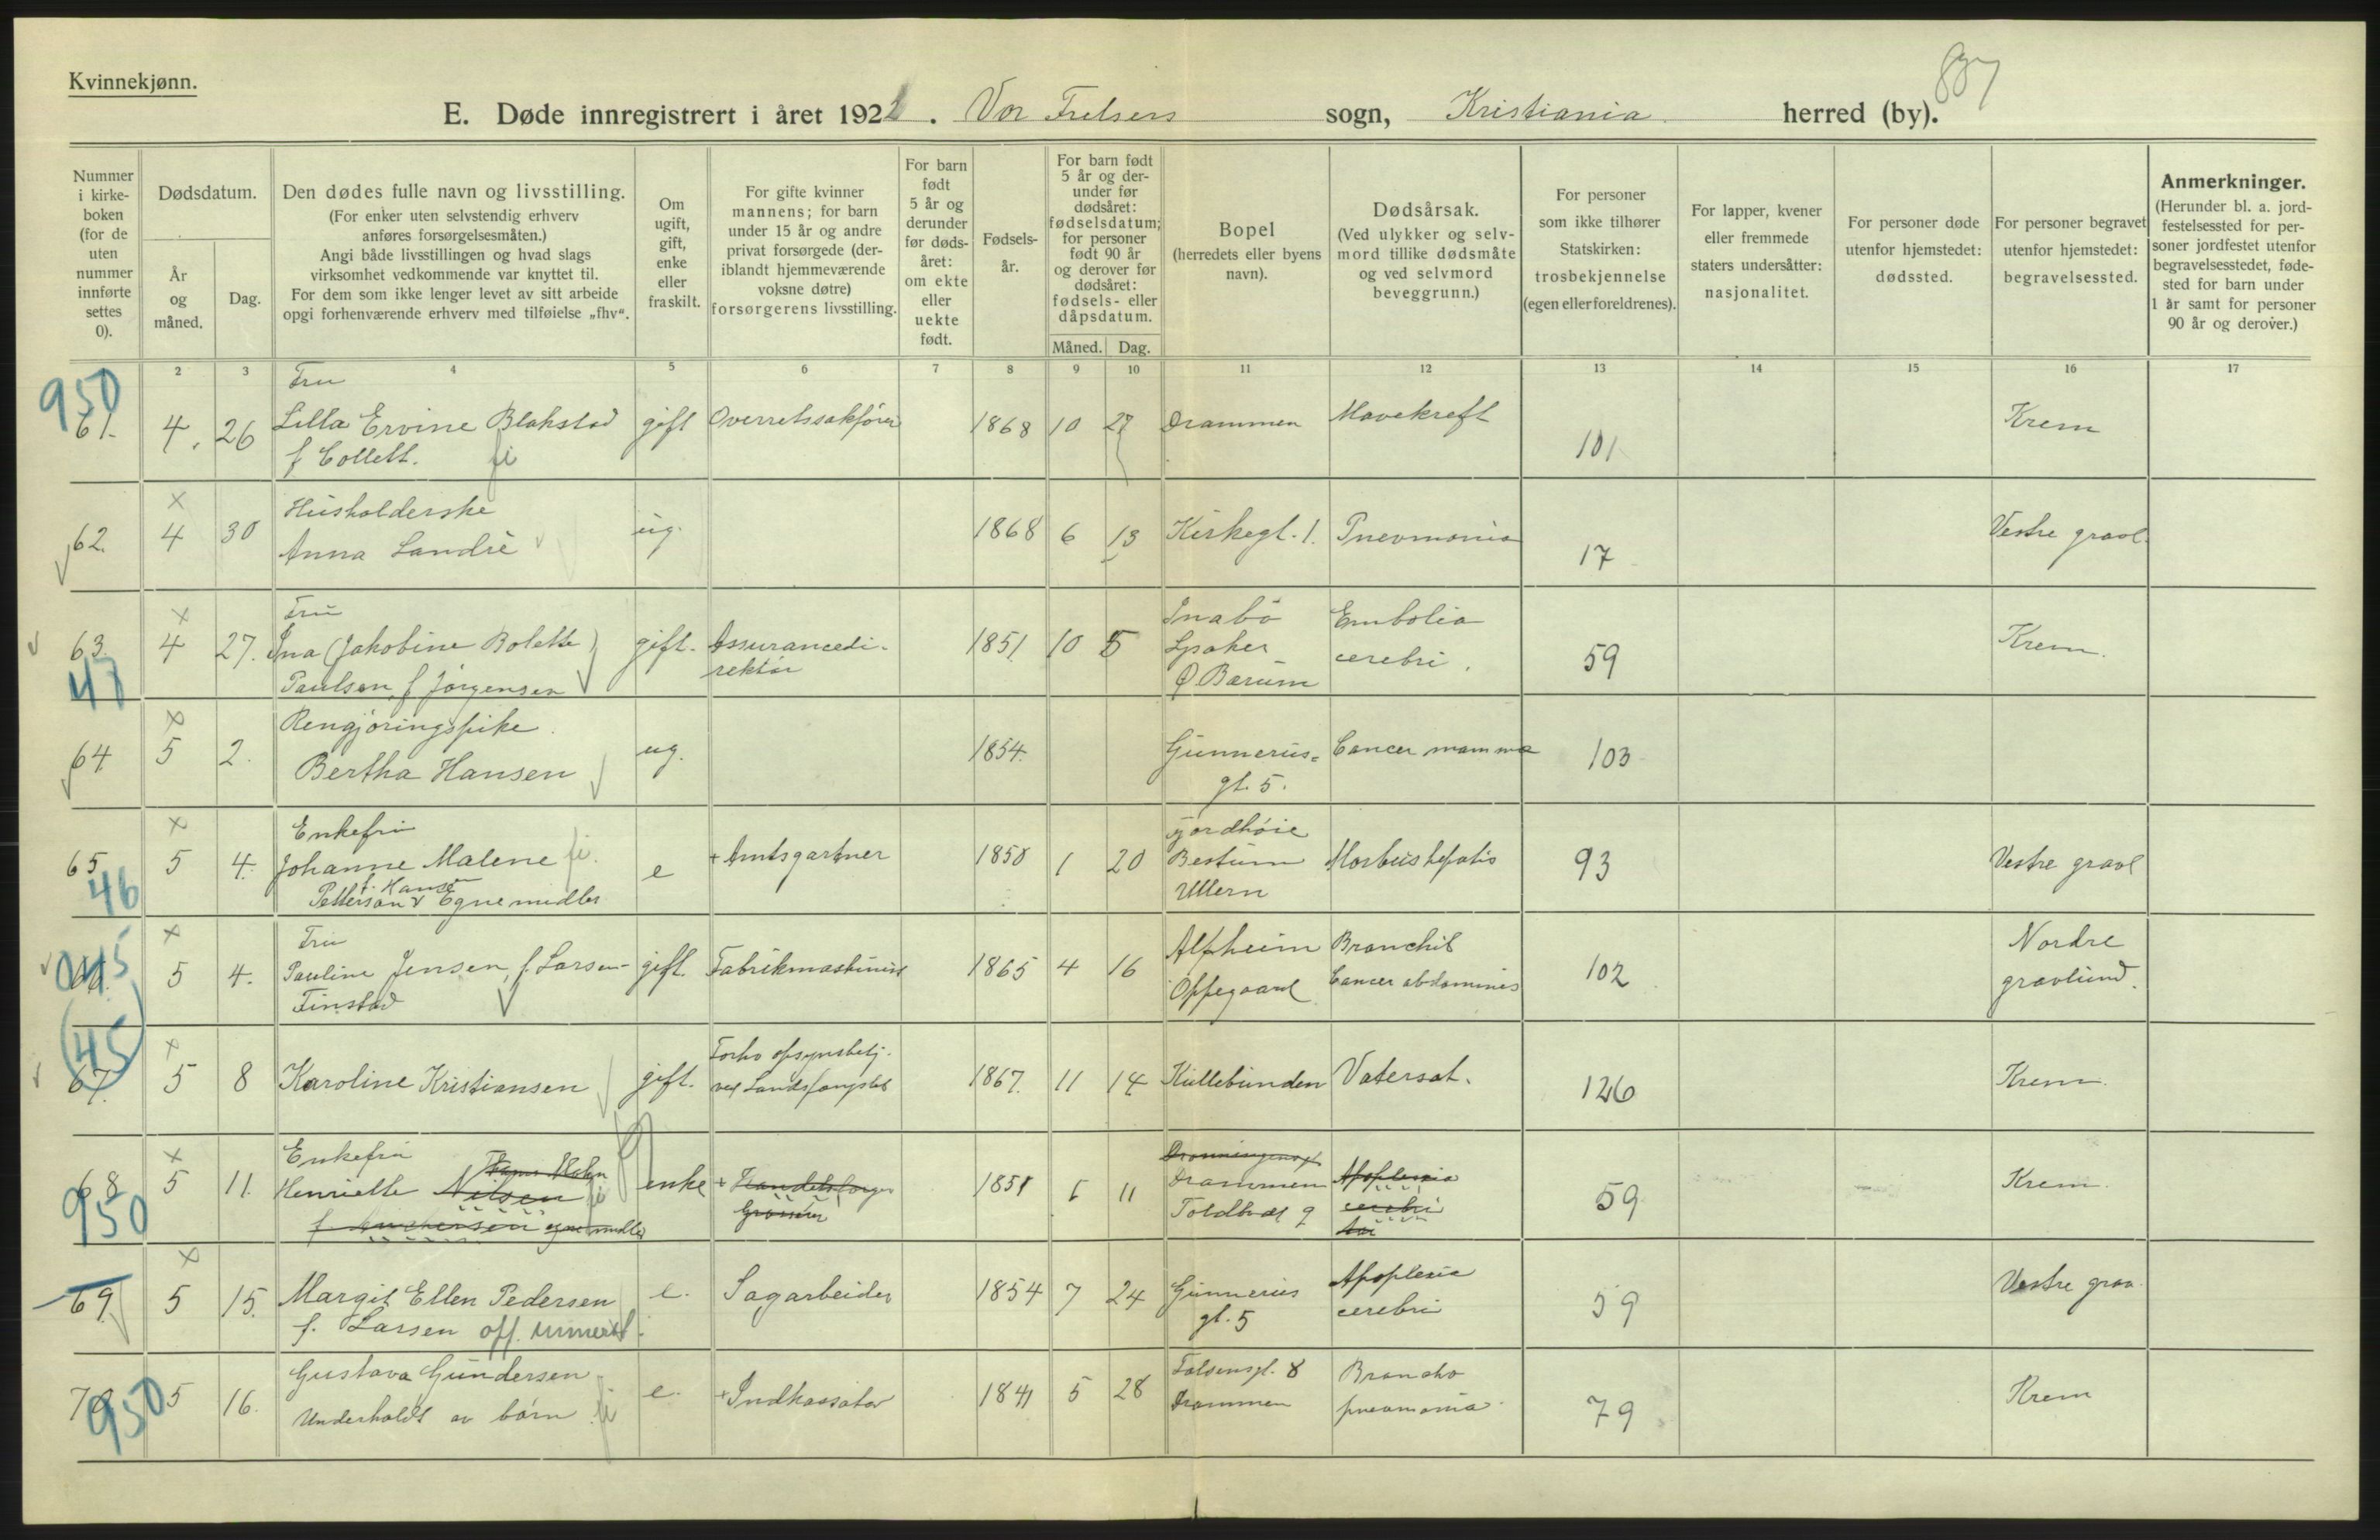 Kvinnekjønn.
837
E. Døde innregistrert i året 1922. Vor Frelsers sogn, Kristiania herred (by).
Nummer i kirke-boken (for de uten nummer innførte settes 0).
Dødsdatum.
År og måned.
Dag.
Den dødes fulle navn og livsstilling.
(For enker uten selvstendig erhverv anføres forsørgelsesmåten.)
Angi både livsstillingen og hvad slags virksomhet vedkommende var knyttet til.
For dem som ikke lenger levet av sitt arbeide opgi forhenværende erhverv med tilføielse „fhv“.
Om ugift, gift, enke eller fraskilt.
For gifte kvinner mannens; for barn under 15 år og andre privat forsørgede (der-iblandt hjemmeværende voksne døtre) forsørgerens livsstilling.
For barn født 5 år og derunder før døds-året: om ekte eller uekte født.
Fødsels-år.
For barn født 5 år og der-under før dødsåret: fødselsdatum; for personer født 90 år og derover før dødsåret: fødsels- eller dåpsdatum.
Måned. Dag.
Bopel (herredets eller byens navn).
Dødsårsak. (Ved ulykker og selv-mord tillike dødsmåte og ved selvmord beveggrunn.)
For personer som ikke tilhører Statskirken: trosbekjennelse (egen eller foreldrenes).
For lapper, kvener eller fremmede staters undersåtter: nasjonalitet.
For personer døde utenfor hjemstedet: dødssted.
For personer begravet utenfor hjemstedet: begravelsessted.
Anmerkninger. (Herunder bl. a. jord-festelsessted for per-soner jordfestet utenfor begravelsesstedet, føde-sted for barn under 1 år samt for personer 90 år og derover.)
2 3 4 5 6 7 8 9 10 11 12 13 14 15 16 17
950
Fru
61. 4. 26 Lilla Ervine Blakstad gift Overretssakfører 1868 10 27 Drammen Mavekreft 101 Krem
f Collett. fi
x Husholderske
62. 4 30 Anna Landrè ug. 1868 6 13 Kirkegt. 1. Pneumonia 17 Vestre gravl.
x Fru Embolia
63. 4 27. Ina (Jakobine Bolette) gift. Assurancedi- 1851 10 5 Lysaker cerebri. 59 Krem.
47 Paulsen, f Jørgensen rektør Ø. Bærum
x Rengjøringspike
64. 5 2. Bertha Hansen ug. 1854. Gunnerus- Cancer mamma 103
gt. 5.
x Enkefru Fjordhøie
65 5 4. Johanne Malene fi. e + Amtsgartner 1850 1 20 Bestum Morbus hepatis 93 Vestre gravl
46 f. Hansen
Petterson Egne midler Ullern
x Fru Alfheim Bronchit Nordre
45 5 4. Pauline Jensen, f. Larsen- gift. Fabrikmaskinist 1865 4 16 Oppegaard Cancer abdominis 102 gravlund.
Finstad
(45)
x
67. 5 8 Karoline Kristiansen gift. opsynsbetj. ved Landsfængslet 1867. 11 14 Kullebunden Vatersot. 126 Krem.
x Enkefru
68 5 11. Henriette Nilsen fi enke + Grosserer 1851 11 Drammen Apoplexia cerebri 59 Krem.
950 egne midler Toldbod 9
x
69. 5 15. Margit Ellen Pedersen e. Sagarbeider 1854 7 24 Gunnerus gt. 5 Apoplexia cerebri 59 Vestre grav.
f. Larsen off.
70 5 16. Gustava Gundersen e. + Indkassator 1841 5 28 8 Drammen Broncho pneumonia 79 Krem
950 Underholdt av børn fi